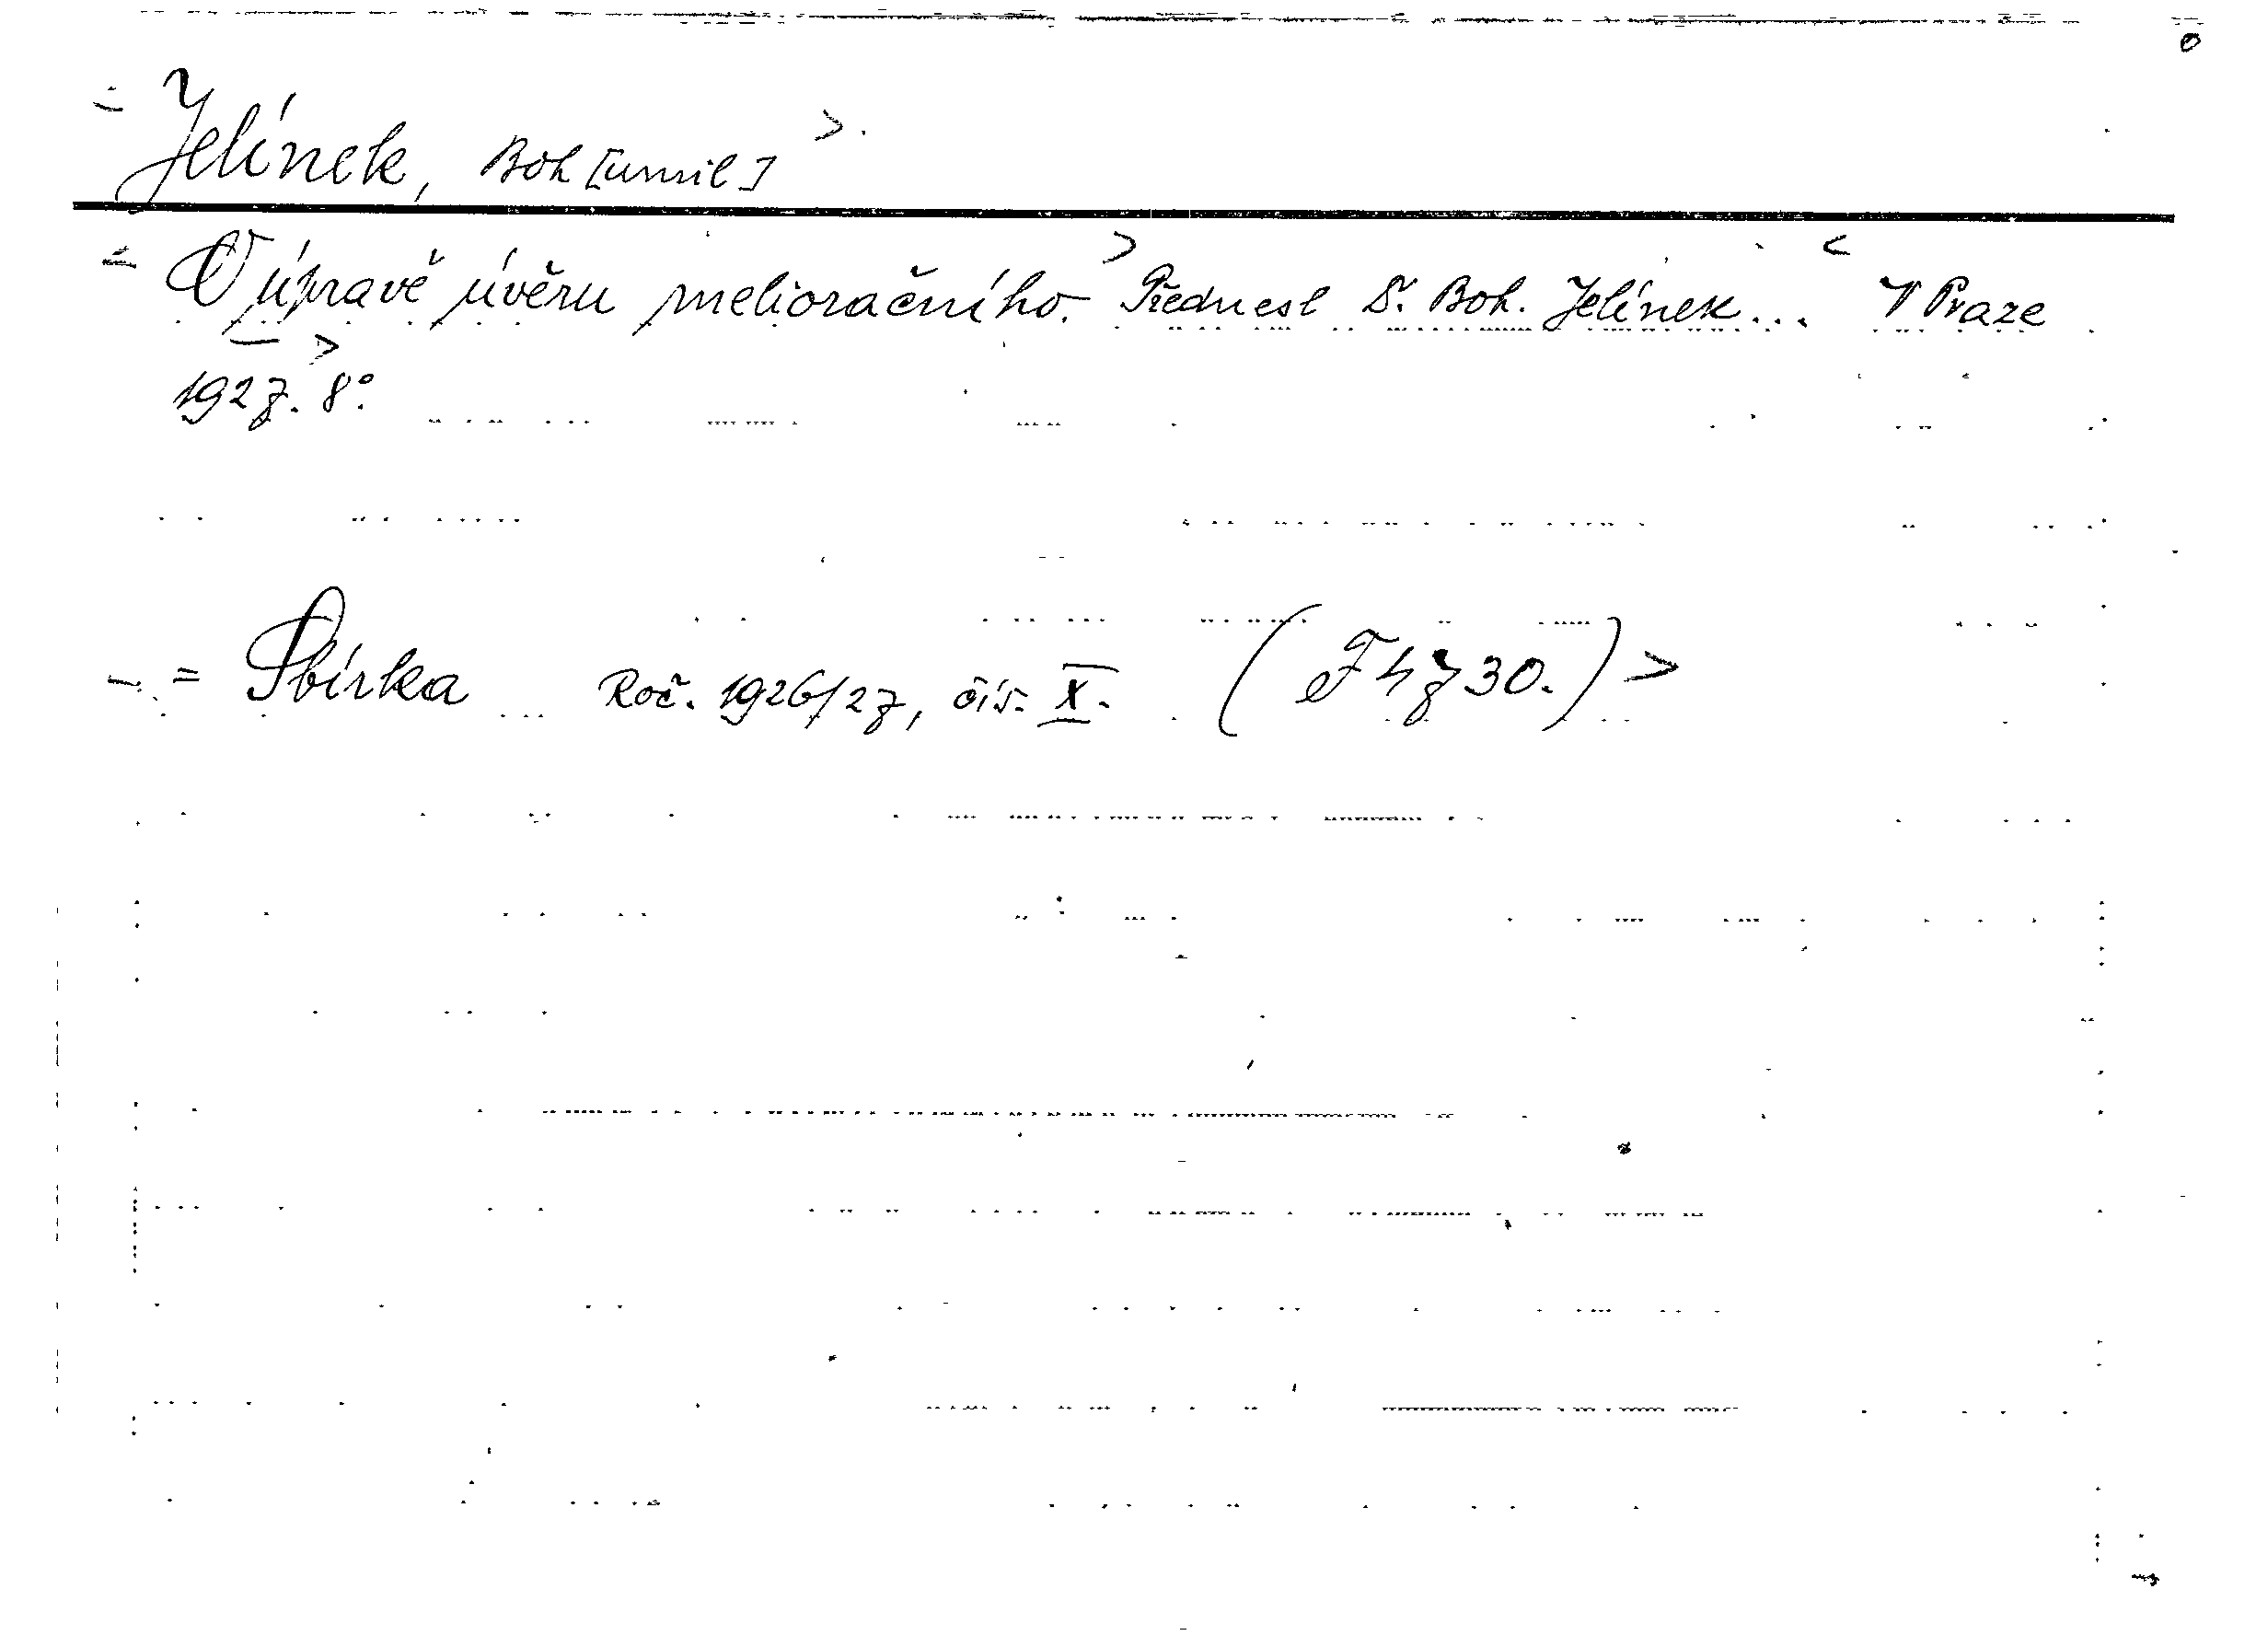 Jelínek, Boh[umil]
O úpravě úvěru melioračního. Přednesl Dr. Boh. Jelínek... V Praze
1927. 8°.
= Sbírka Roč. 1926/27, čís. X. (F 4730.)